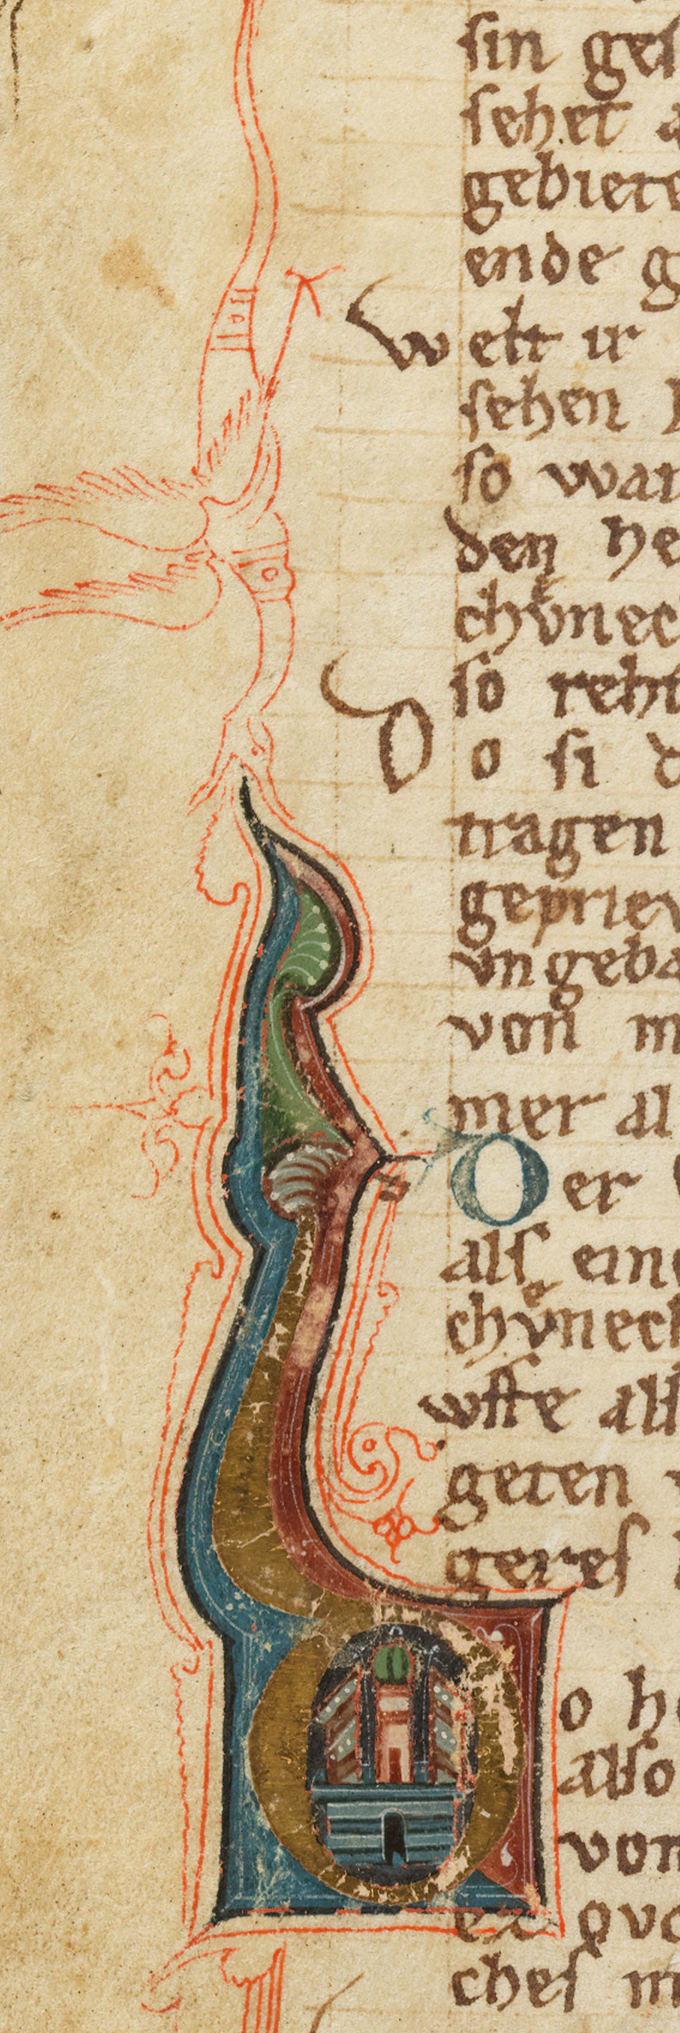 sin ges
sehet a
gebiete
ende g
Welt ir
sehen
so war
den he
chůnec
so reht
Do si d
tragen
gepriev
vngeba
von m
mer al
Der
als eine
chůnecl
wste als
geten
geres
Do ho
also
von
ex quo
ches m